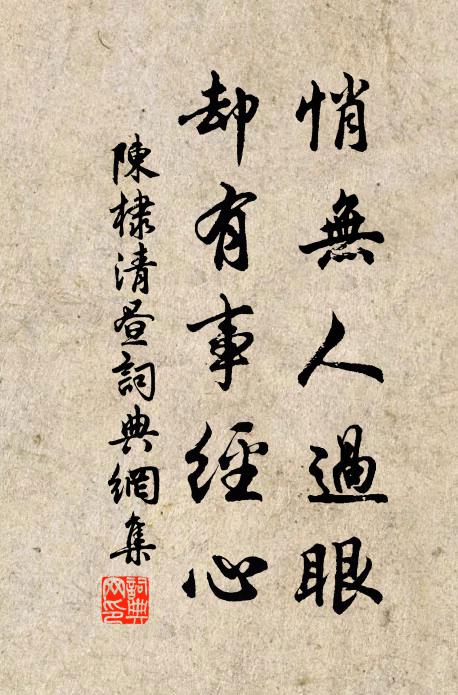 悄無人過眼
却有事經心
陳棣清晝詞典網集
詞典網印